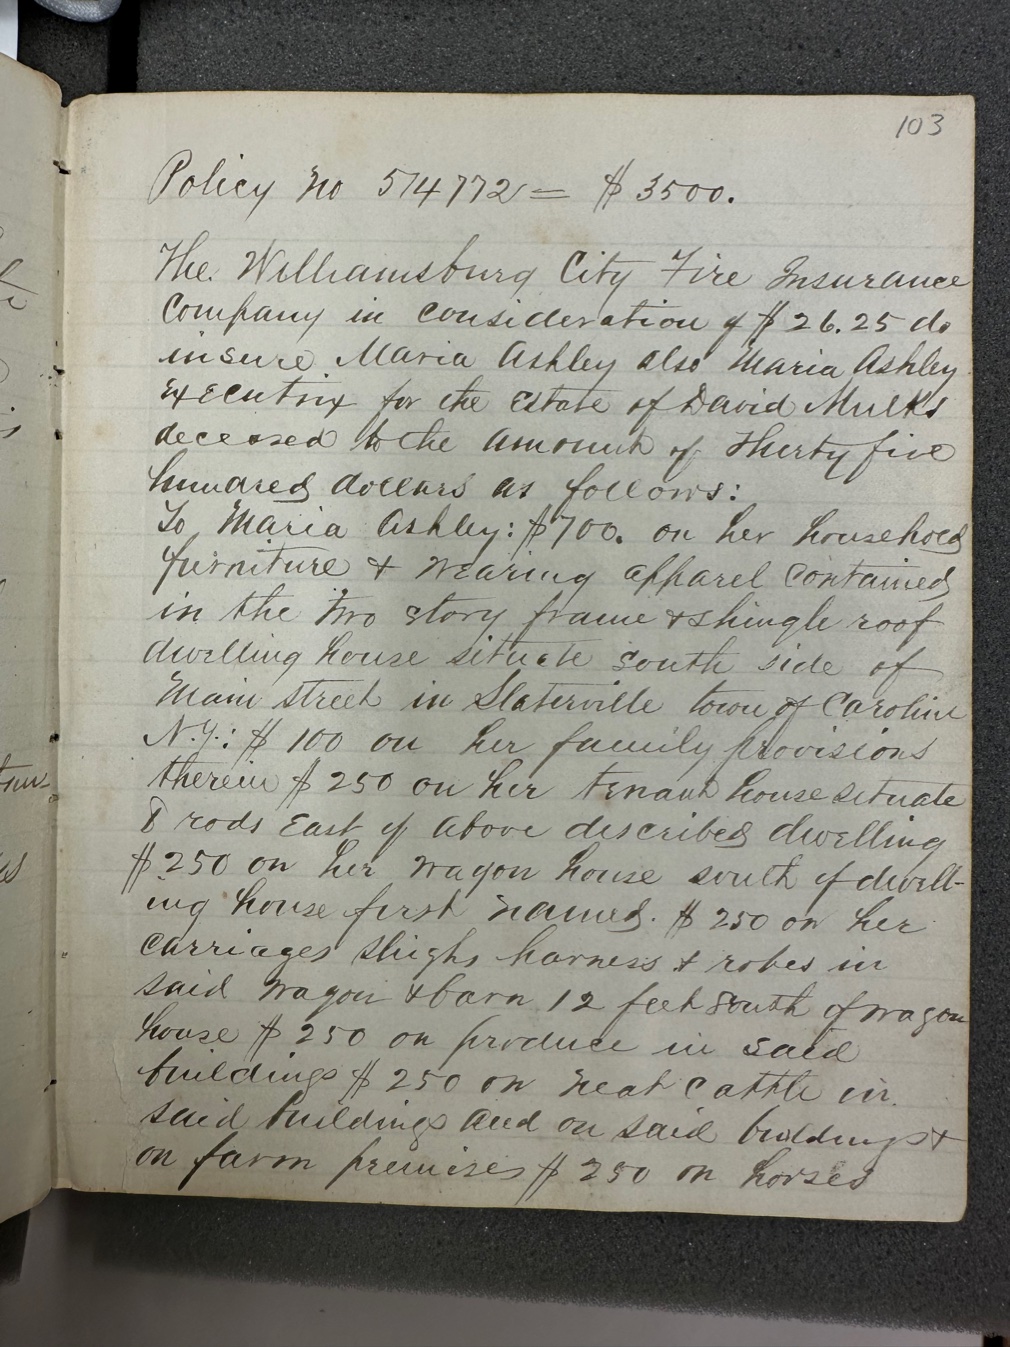 103
Policy No 574772 = $3500.
The Williamsburg City Fire Insurance
Company in consideration of $26.25 do
insure Maria Ashley also Maria Ashley
Executrix for the Estate of David Mulks
deceased to the amount of Thirty five
hundred dollars as follows:
To Maria Ashley: $700. on her household
furniture & wearing apparel contained
in the two story frame & shingle roof
dwelling house situate south side of
Main street in Slaterville town of Caroline
N.Y.: $100 on her family provisions
therein $250 on her tenant house situate
8 rods East of above described dwelling
$250 on her wagon house south of dwell-
ing house first named. $250 on her
carriages sleighs harness & robes in
said wagon & barn 12 feet south of wagon
house $250 on produce in said
buildings $250 on neat cattle in
said buildings and on said buildings &
on farm premises $250 on horses